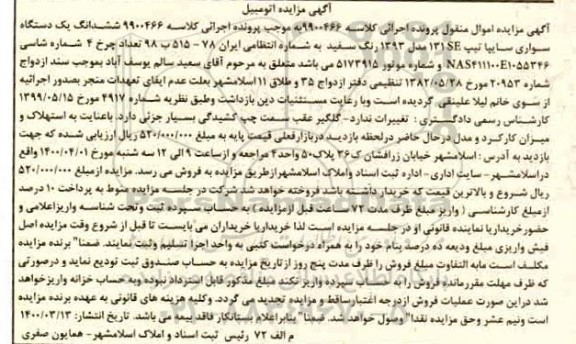 آگهی مزایده اتومبیل
آگهی مزایده اموال منقول پرونده اجرائی کلاسه ۹۹۰۰۴۶۶به موجب پرونده اجرائی کلاسه ۹۹۰۰۴۶۶ ششدانگ یک دستگاه
سواری سایپا تیپ ۱۳۱SE مدل ۱۳۹۳رنگ سفید به شماره انتظامی ایران ۷۸ - ۵۱۵ ب ۹۸ تعداد چرخ ۴ شماره شاسی
NAS۴۱۱۱۰۰E۱۰۵۵۳۴۶ و شماره موتور ۵۱۷۳۹۱۵ می باشد متعلق به مرحوم آقای سعید سالم یوسف آباد بموجب سند ازدواج
شماره ۲۰۹۵۳ مورخ ۱۳۸۲/۰۵/۲۸ تنظیمی دفتر ازدواج ۳۵ و طلاق ۱۱ اسلامشهر بعلت عدم ایفای تعهدات منجر بصدور اجرائیه
از سوی خانم لیلا علینقی گردیده است وبا رعایت مستثنیات دین بازداشت وطبق نظریه شماره ۴۹۱۷ مورخ ۱۳۹۹/۰۵/۱۵
کارشناس رسمی دادگستری : تغییرات ندارد- گلگیر عقب سمت چپ کشیدگی بسیار جزئی دارد. باعنایت به استهلاک و
میزان کارکرد و مدل درحال حاضر درلحظه بازدید دربازارفعلی قیمت پایه به مبلغ ۵۲۰/۰۰۰/۰۰۰ ریال ارزیابی شده که جهت
بازدید به آدرس : اسلامشهر خیابان زرافشان ک۳۶ پلاک۵۰ واحد۴ مراجعه و ازساعت ۹ الی ۱۲ سه شنبه مورخ ۱۴۰۰/۰۴/۰۱ واقع
دراسلامشهر- سایت اداری - اداره ثبت اسناد واملاک اسلامشهرازطریق مزایده به فروش می رسد. مزایده ازمبلغ ۵۲۰/۰۰۰/۰۰۰
ریال شروع و بالاترین قیمت که خریدار داشته باشد فروخته خواهد شد شرکت در جلسه مزایده منوط به پرداخت ۱۰ درصد
ازمبلغ کارشناسی ( واریز مبلغ ظرف مدت ۷۲ ساعت قبل ازمزایده ) به حساب سپرده ثبت وتحت شناسه واریزاعلامی و
حضورخریداریا نماینده قانونی او در جلسه مزایده است لذا خریداریا خریداران می بایست تا قبل از شروع وقت مزایده اصل
فیش واریزی مبلغ ودیعه ده درصد بنام خود را به همراه درخواست کتبی به واحد اجرا تسلیم وثبت نمایند. ضمنا" برنده مزایده
مکلف است مابه التفاوت مبلغ فروش را ظرف مدت پنج روز ازتاریخ مزایده به حساب صندوق ثبت تودیع نماید و درصورتی
که ظرف مهلت مقررمانده فروش را به حساب سپرده واریز نکند مبلغ مذکور قابل استرداد نبوده وبه حساب خزانه واریزخواهد
شد دراین صورت عملیات فروش ازدرجه اعتبارساقط و مزایده تجدید می گردد. وکلیه هزینه های قانونی به عهده برنده مزایده
است ونیم عشر وحق مزایده نقدا" وصول خواهد شد. ضمنا" بنابراعلام بستانکار فاقد بیمه می باشد. تاریخ انتشار: ۱۴۰۰/۰۳/۱۳
م الف ۷۲ رئیس ثبت اسناد و املاک اسلامشهر- همایون صفری